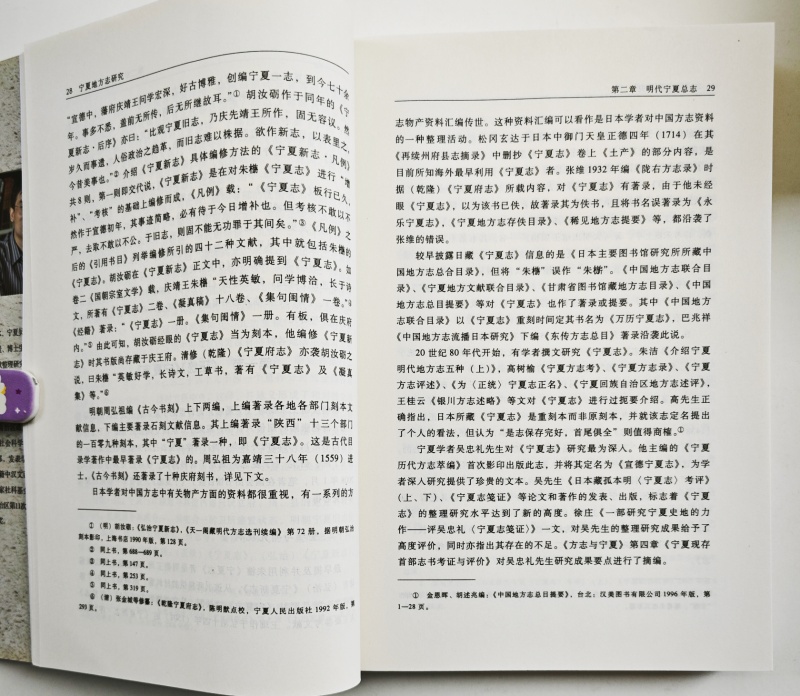 28 宁夏地方志研究
“宣德中，藩府庆靖王问学宏深，好古博雅，创编宁夏一志，到今七十余
年。事多不悉，盖前无所传，后无所继故耳。”① 胡汝砺作于同年的《宁
夏新志·后序》亦曰：“比观宁夏旧志，乃庆先靖王所作，固无容议。然
岁久而事遗，人俗政治之趋革，而旧志难以株据。欲作新志，以表里之，
今昔美事也。”② 介绍《宁夏新志》具体编修方法的《宁夏新志·凡例》
共8则，第一则即交代说，《宁夏新志》是在对朱㮵《宁夏志》进行“增
补”、“考核”的基础上编修而成，《凡例》载：“《宁夏志》板行已久，
然作于宣德初年，其事迹简略，必有待于今日增补也。但考核不敢以不
严、去取不敢以不公；于旧志，则固不能无功罪于其间矣。”③《凡例》之
后的《引用书目》列举编修所引的四十二种文献，其中就包括朱㮵的
《宁夏志》。胡汝砺在《宁夏新志》正文中，亦明确提到《宁夏志》。如
卷二《国朝宗室文学》载，庆靖王朱㮵“天性英敏，问学博洽，长于诗
文，所著有《宁夏志》二卷、《凝真稿》十八卷、《集句闺情》一卷。”④
《经籍》著录：“《宁夏志》一册。《集句闺情》一册。有板，俱在庆府
内。”⑤ 由此可知，胡汝砺经眼的《宁夏志》当为刻本，他编修《宁夏新
志》时其书版尚存藏于庆王府。清修（乾隆）《宁夏府志》亦袭胡汝砺之
说，曰朱㮵“英敏好学，长诗文，工草书，著有《宁夏志》及《凝真
集》等。”⑥
明朝周弘祖编《古今书刻》上下两编，上编著录各地各部门刻本文
献信息，下编主要著录石刻文献信息。其上编著录“陕西”十三个部门
的一百零九种刻本，其中“宁夏”著录一种，即《宁夏志》。这是古代目
录学著作中最早著录《宁夏志》的。周弘祖为嘉靖三十八年（1559）进
士，《古今书刻》还著录了十种庆府刻书，详见下文。
日本学者对中国方志中有关物产方面的资料都很重视，有一系列的方
① （明）胡汝砺：《弘治宁夏新志》，《天一阁藏明代方志选刊续编》第72册，据明朝弘治
刻本影印，上海书店1990年版，第128页。
② 同上书，第688—689页。
③ 同上书，第147页。
④ 同上书，第253页。
⑤ 同上书，第319页。
⑥ （清）张金城等修纂：《乾隆宁夏府志》，陈明猷点校，宁夏人民出版社1992年版，第
293页。
第二章 明代宁夏总志 29
志物产资料汇编传世。这种资料汇编可以看作是日本学者对中国方志资料
的一种整理活动。松冈玄达于日本中御门天皇正德四年（1714）在其
《再续州府县志摘录》中删抄《宁夏志》卷上《土产》的部分内容，是
目前所知海外最早利用《宁夏志》者。张维1932年编《陇右方志录》时
据（乾隆）《宁夏府志》所载内容，对《宁夏志》有著录，由于他未经
眼《宁夏志》，以为该书已佚，故著录其为佚书，且将书名误著录为《永
乐宁夏志》，《宁夏地方志存佚目录》、《稀见地方志提要》等，都沿袭了
张维的错误。
较早披露日藏《宁夏志》信息的是《日本主要图书馆研究所所藏中
国地方志总合目录》，但将“朱㮵”误作“朱旃”。《中国地方志联合目
录》、《宁夏地方文献联合目录》、《甘肃省图书馆藏地方志目录》、《中国
地方志总目提要》等对《宁夏志》也作了著录或提要。其中《中国地方
志联合目录》以《宁夏志》重刻时间定其书名为《万历宁夏志》，巴兆祥
《中国地方志流播日本研究》下编《东传方志总目》著录沿袭此说。
20世纪80年代开始，有学者撰文研究《宁夏志》。朱洁《介绍宁夏
明代地方志五种（上）》，高树榆《宁夏方志考》、《宁夏方志录》、《宁夏
方志评述》、《为（正统）宁夏志正名》、《宁夏回族自治区地方志述评》，
王桂云《银川方志述略》等文对《宁夏志》进行过扼要介绍。高先生正
确指出，日本所藏《宁夏志》是重刻本而非原刻本，并就该志定名提出
了个人的看法，但认为“是志保存完好，首尾俱全”则值得商榷。①
宁夏学者吴忠礼先生对《宁夏志》研究最为深入。他主编的《宁夏
历代方志萃编》首次影印出版此志，并将其定名为《宣德宁夏志》，为学
者深入研究提供了珍贵的文本。吴先生《日本藏孤本明〈宁夏志〉考评》
（上、下）、《宁夏志笺证》等论文和著作的发表、出版，标志着《宁夏
志》的整理研究水平达到了新的高度。徐庄《一部研究宁夏史地的力
作——评吴忠礼〈宁夏志笺证〉》一文，对吴先生的整理研究成果给予了
高度评价，同时亦指出其存在的不足。《方志与宁夏》第四章《宁夏现存
首部志书考证与评价》对吴忠礼先生研究成果要点进行了摘编。
① 金恩晖、胡述兆编：《中国地方志总目提要》，台北：汉美图书有限公司1996年版，第
1—28页。